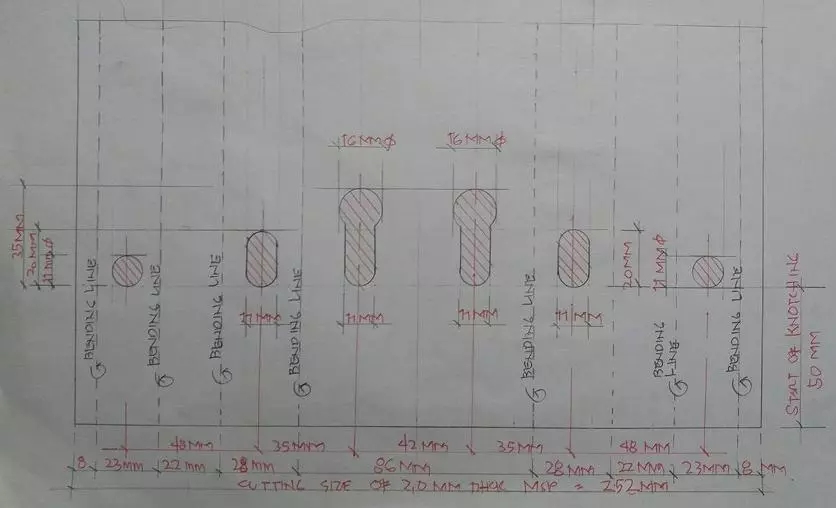 16 MM ϕ 16 MM ϕ
35 MM
20 MM
11 MM ϕ
20 MM
11 MM ϕ
BENDING LINE
BENDING LINE
BENDING LINE
BENDING LINE
BENDING LINE
BENDING LINE
BENDING LINE
11 MM
11 MM
11 MM
11 MM
START OF KNOTCHING
50 MM
48 MM 35 MM 42 MM 35 MM 48 MM
8 23mm 22 mm 28 mm 86 MM 28 MM 22 MM 23 MM 8 MM
CUTTING SIZE OF 2.0 MM THCK MSP = 252 MM